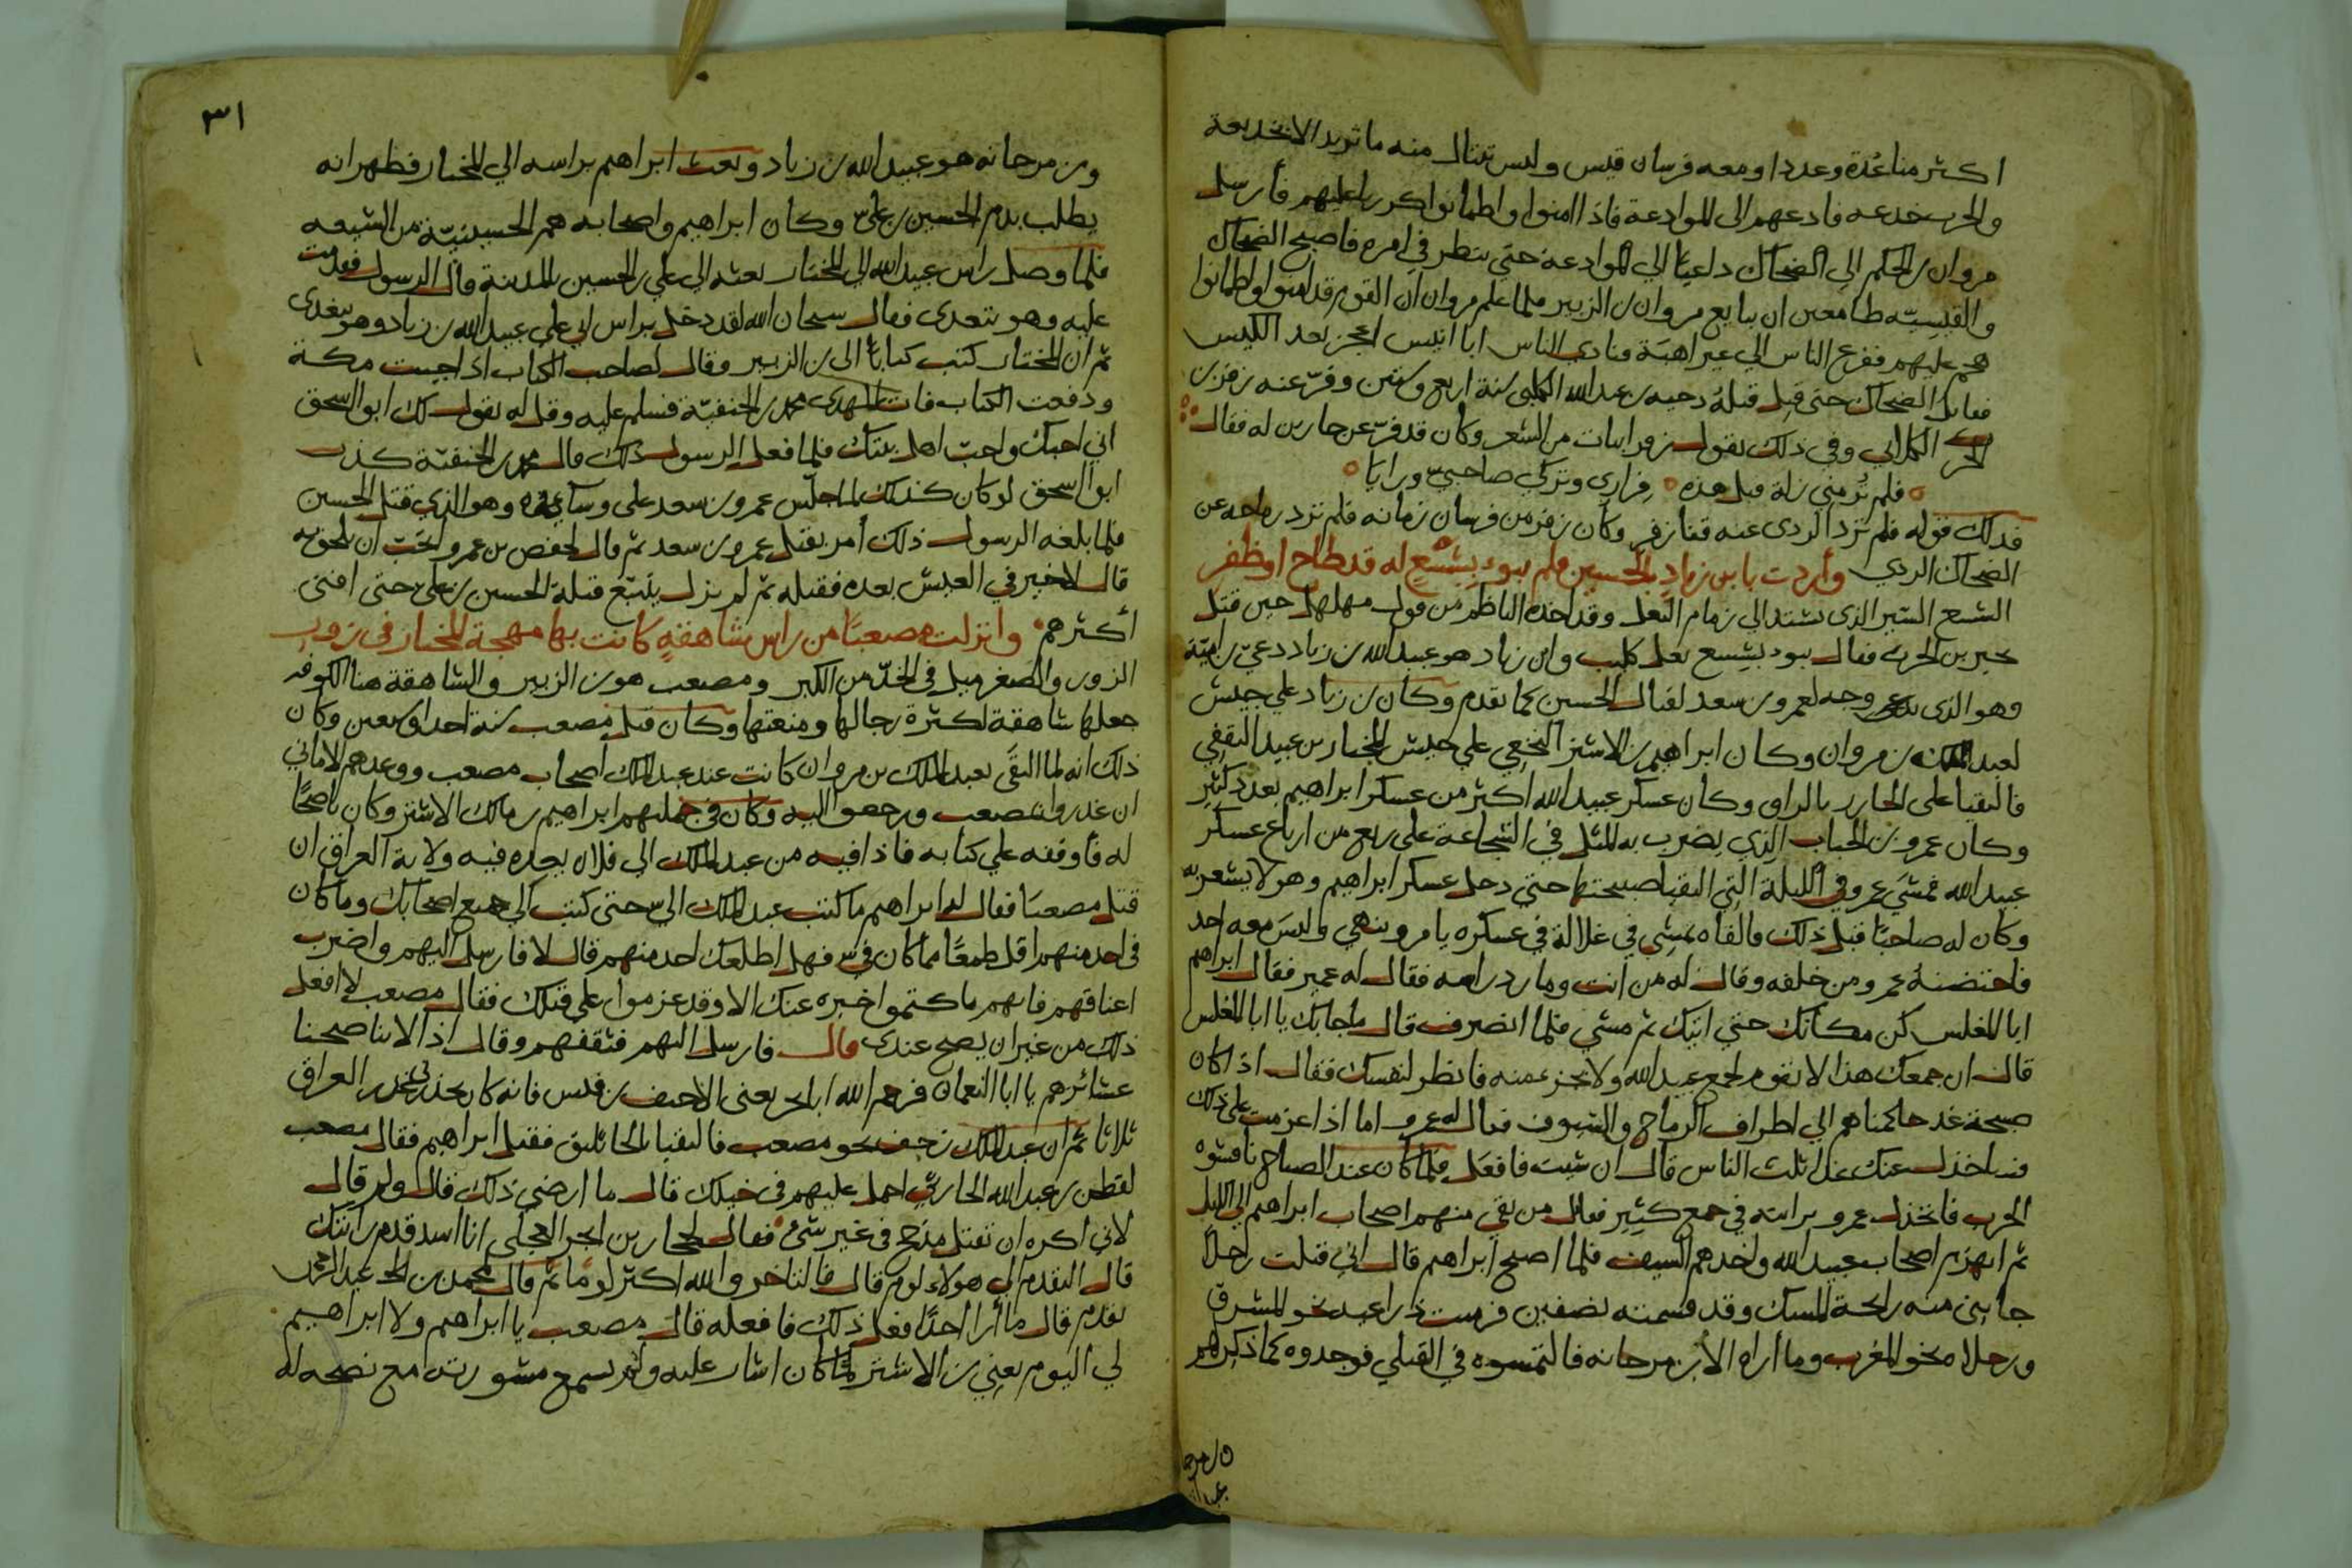 اكثر منا عُدة وعددا ومعه فرسان قيس وليس تنال منه ما تريد الا بخديعة
والحرب خدعه فادعهم الى الموادعة فاذا امنوا واطمانوا كر عليهم فأرسل
مروان بن الحكم الى الضحاك داعيًا الي الموادعة حتى ينظر في امره فاصبح الضحاك
والقيسيّه طامعين ان يبايع مروان لابن الزبير فلما علم مروان ان القوم قد امنوا واطمانوا
هجم عليهم ففزع الناس الي غير اهبة ونادى الناس ابا انيس اعجز بعد الكيس
فقاتل الضحاك حتى قتل قتله دحيه بن عبدالله الكلبى سنة اربع وستين وفرّ عنه زفر بن
الحرث الكلابي وفي ذلك يقول زفر ابيات من الشعر وكان قد فرّ عن جارين له فقال
فلم تُر مني زلة قبل هذه فراري وتركي صاحبيّ ورايًا
فذلك قوله فلم ترد الردى عنه قنا زفر وكان زفر من فرسان زمانه فلم ترد رماحه عن
الضحاك الردي وأردت بابن زيادٍ بالحسين فلم يبوء بشسعٍ له قد طاح او ظفر
الشسع السّير الذى تشتد الى زمام النعل وقد اخذه الناظم من قول مهلهل حين قتل
بجير بن الحرث فقال بوء بشسع نعل كليب وابن زياد هو عبيدالله بن زياد دعيّ بن اميّة
وهو الذى وجه لعمرو بن سعد لقتال الحسين كما تقدم وكان بن زياد على جيش
لعبد الملك بن مروان وكان ابراهيم بن الاشتر النخعي علي جيش المختار بن عبيد الثقفي
فالتقيا على الخازر بالزاب وكان عسكر عبيدالله اكثر من عسكر ابراهيم بعدد كثير
وكان عمرو بن الحباب الذي يضرب به المثل في الشجاعة على ربع من ارباع عسكر
عبيد الله فمشي عمرو في الليلة التي التقيا صبيحتها حتى دخل عسكر ابراهيم وهو لا يشعر به
وكان له صاحبًا قبل ذلك فالفاه يمشي في غلالة في عسكره يامر وينهي وليس معه احد
فاحتضنهُ عمرو من خلفه وقال له من انت وما رد راسه فقال له عمير فقال ابراهيم
ابا المغلس كن مكانك حتي اتيك ثم مشي فلما انصرف قال ما جابك يا ابا المغلس
قال ان جمعك هذا لا تقوم لجمع عبيدالله ولا بجزء منه فانظر لنفسك فقال اذا كان
صبيحة غد حاكمناهم الي اطراف الرماح والسيوف فقال له عمرو اما اذا عزمت على ذلك
فساخذل عنك غدا ثلث الناس قال ان شيت فافعل فلما كان عند الصباح ناقشوه
الحرب فانخذل عمرو برايته في جمع كثير فقاتل من بقي منهم اصحاب ابراهيم الي الليل
ثم انهزم اصحاب عبيد الله واخذهم السيف فلما اصبح ابراهيم قال اني قتلت رجلًا
جابني منه رايحة المسك وقد قسمته نصفين فرميت ذراعيه نحو المشرق
ورجلاه نحو المغرب وما أراه الا بن مرجانه فالتمسوه في القتلي فوجدوه كما ذكر لهم
٣١
وبن مرجانه هو عبيدالله بن زياد وبعث ابراهيم براسه الي المختار فظهر انه
يطلب بدم الحسين بن علىّ وكان ابراهيم واصحابه هم الحسينيّة من الشيعه
فلما وصل راس عبيدالله الي المختار بعثه الي علي بن الحسين بالمدينة قال الرسول فقدمت
عليه وهو يتغدى فقال سبحان الله لقد دخل براس ابي علي عبيدالله بن زياد وهو يتغدى
ثم ان المختار كتب كتابًا الى بن الزبير وقال لصاحب الكتاب اذا جيت مكة
ودفعت الكتاب فات المهدى محمد بن الحنفيّة فسلم عليه وقل له يقول لك ابو اسحق
اني احبك واحب اهل بيتك فلما فعل الرسول ذلك قال محمد بن الحنفيّة كذب
ابو اسحق لو كان كذلك لما جلس عمرو بن سعد على وسائده وهو الذي قتل الحسين
فلما بلغه الرسول ذلك أمر بقتل عمرو بن سعد ثم قال لحفص بن عمرو اتحب ان تلحق به
قال لا خير في العيش بعده فقتله ثم لم يزل يتتبّع قتلة الحسين بن علىّ حتى افنى
أكثرهم وانزلت مصعبًا من راس شاهقةٍ كانت بها مهجة المختار في زور
الزور والصغر ميل في الخدّ من الكبر ومصعب هو بن الزبير والشاهقة هنا الكوفه
جعلها شاهقة لكثرة رجالها ومنعتها وكان قتل مصعب سنة احدا وسبعين وكان
ذلك انه لما التقَى بعبد الملك بن مروان كانت عند عبد الملك أصحاب مصعب ووعدهم الاماني
ان غدروا بمصعب ورجعوا اليه وكان في جملتهم ابراهيم بن مالك الاشتر وكان ناصحًا
له فأوقفه علي كتابه فاذا فيه من عبد الملك الي فلان يعده فيه ولاية العراق ان
قتل مصعبًا فقال له ابراهيم ما كتب عبد الملك اليّ حتى كتب الي جميع اصحابك وما كان
في احد منهم اقل طمعًا مما كان فيّ فهل اطلعك احد منهم قال لا فارسل اليهم واضرب
اعناقهم فانهم ما كتموا خبره عنك الا وقد عزموا علي قتلك فقال مصعب لا افعل
ذلك من غير ان يصح عندى قال فارسل اليهم فثقفهم وقال اذا لا يناصحنا
عشائرهم يا ابا النعمان فرحم الله ابا بحر يعني الاحنف بن قيس فانه كان يحذرني غدر العراق
ثلاثا ثم ان عبد الملك زحف نحو مصعب فالتقيا بالجاثليق فقتل ابراهيم فقال مصعب
لقطن بن عبدالله الحارثي احمل عليهم في خيلك قال ما ارضي ذلك قال ولم قال
لاني اكره ان تقتل مذحج في غير شيء فقال لحجار بن ابجر العجلي انا اسد قدم رايتك
قال التقدم الي هولاء لوم قال فالتاخر والله اكثر لومًا ثم قال لمحمد بن عبد الرحمن
تقدم قال ما أرا احدًا فعل ذلك فافعله قال مصعب يا ابراهيم ولا ابراهيم
لي اليوم يعني بن الاشتر لما كان اشار عليه ولم يسمع مشورته مع نصحه له